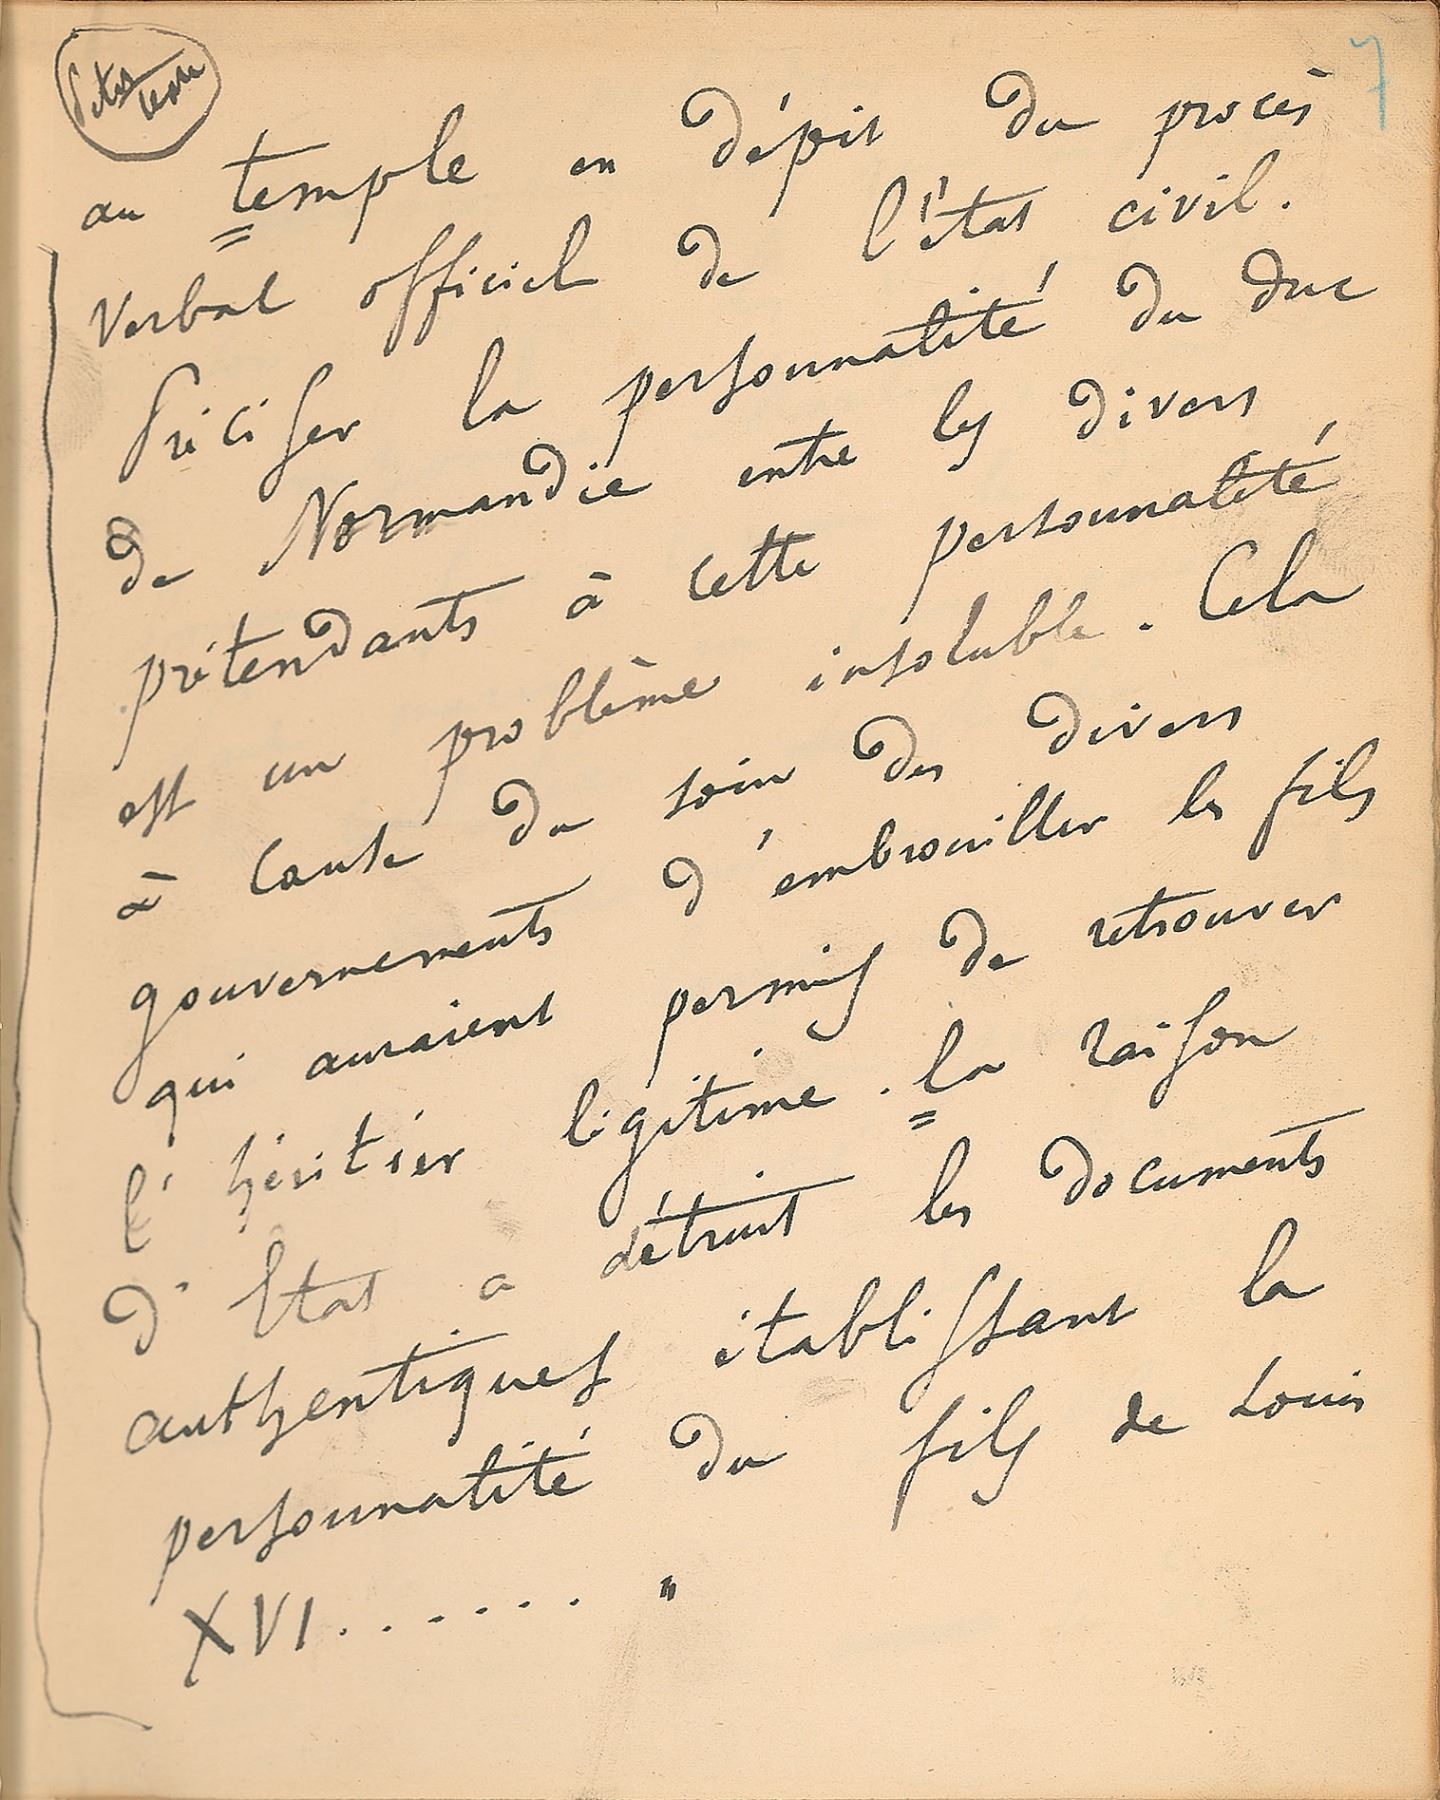 7
Petit texte
au temple en dépit du procès
Verbal officiel de l'état civil.
Préciser la personnalité du duc
de Normandie entre les divers
prétendants à cette personnalité
est un problème insoluble. Cela
à cause du soin des divers
gouvernements d'embrouiller les fils
qui auraient permis de retrouver
l'héritier légitime. la raison
d'Etat a détruit les documents
authentiques établissant la
personnalité du fils de Louis
XVI. . . . . . "